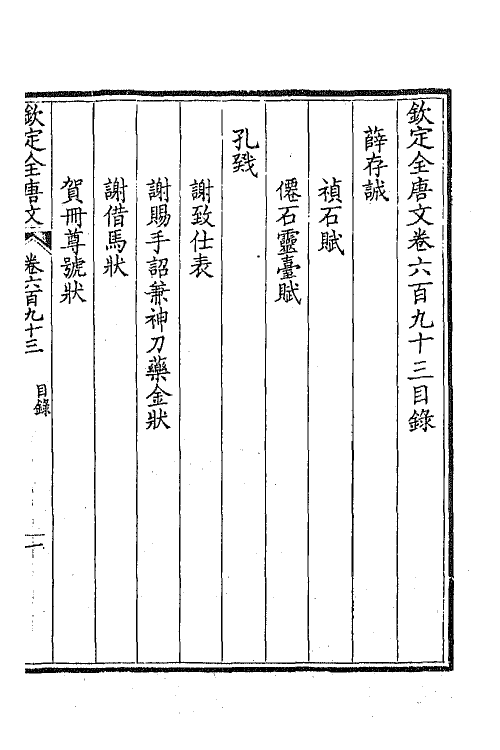 欽定全唐文卷六百九十三目錄
薛存誠
禎石賦
僊石靈臺賦
孔戣
謝致仕表
謝賜手詔兼神刀藥金狀
謝借馬狀
賀冊尊號狀
欽定全唐文
卷六百九十三
目錄
一